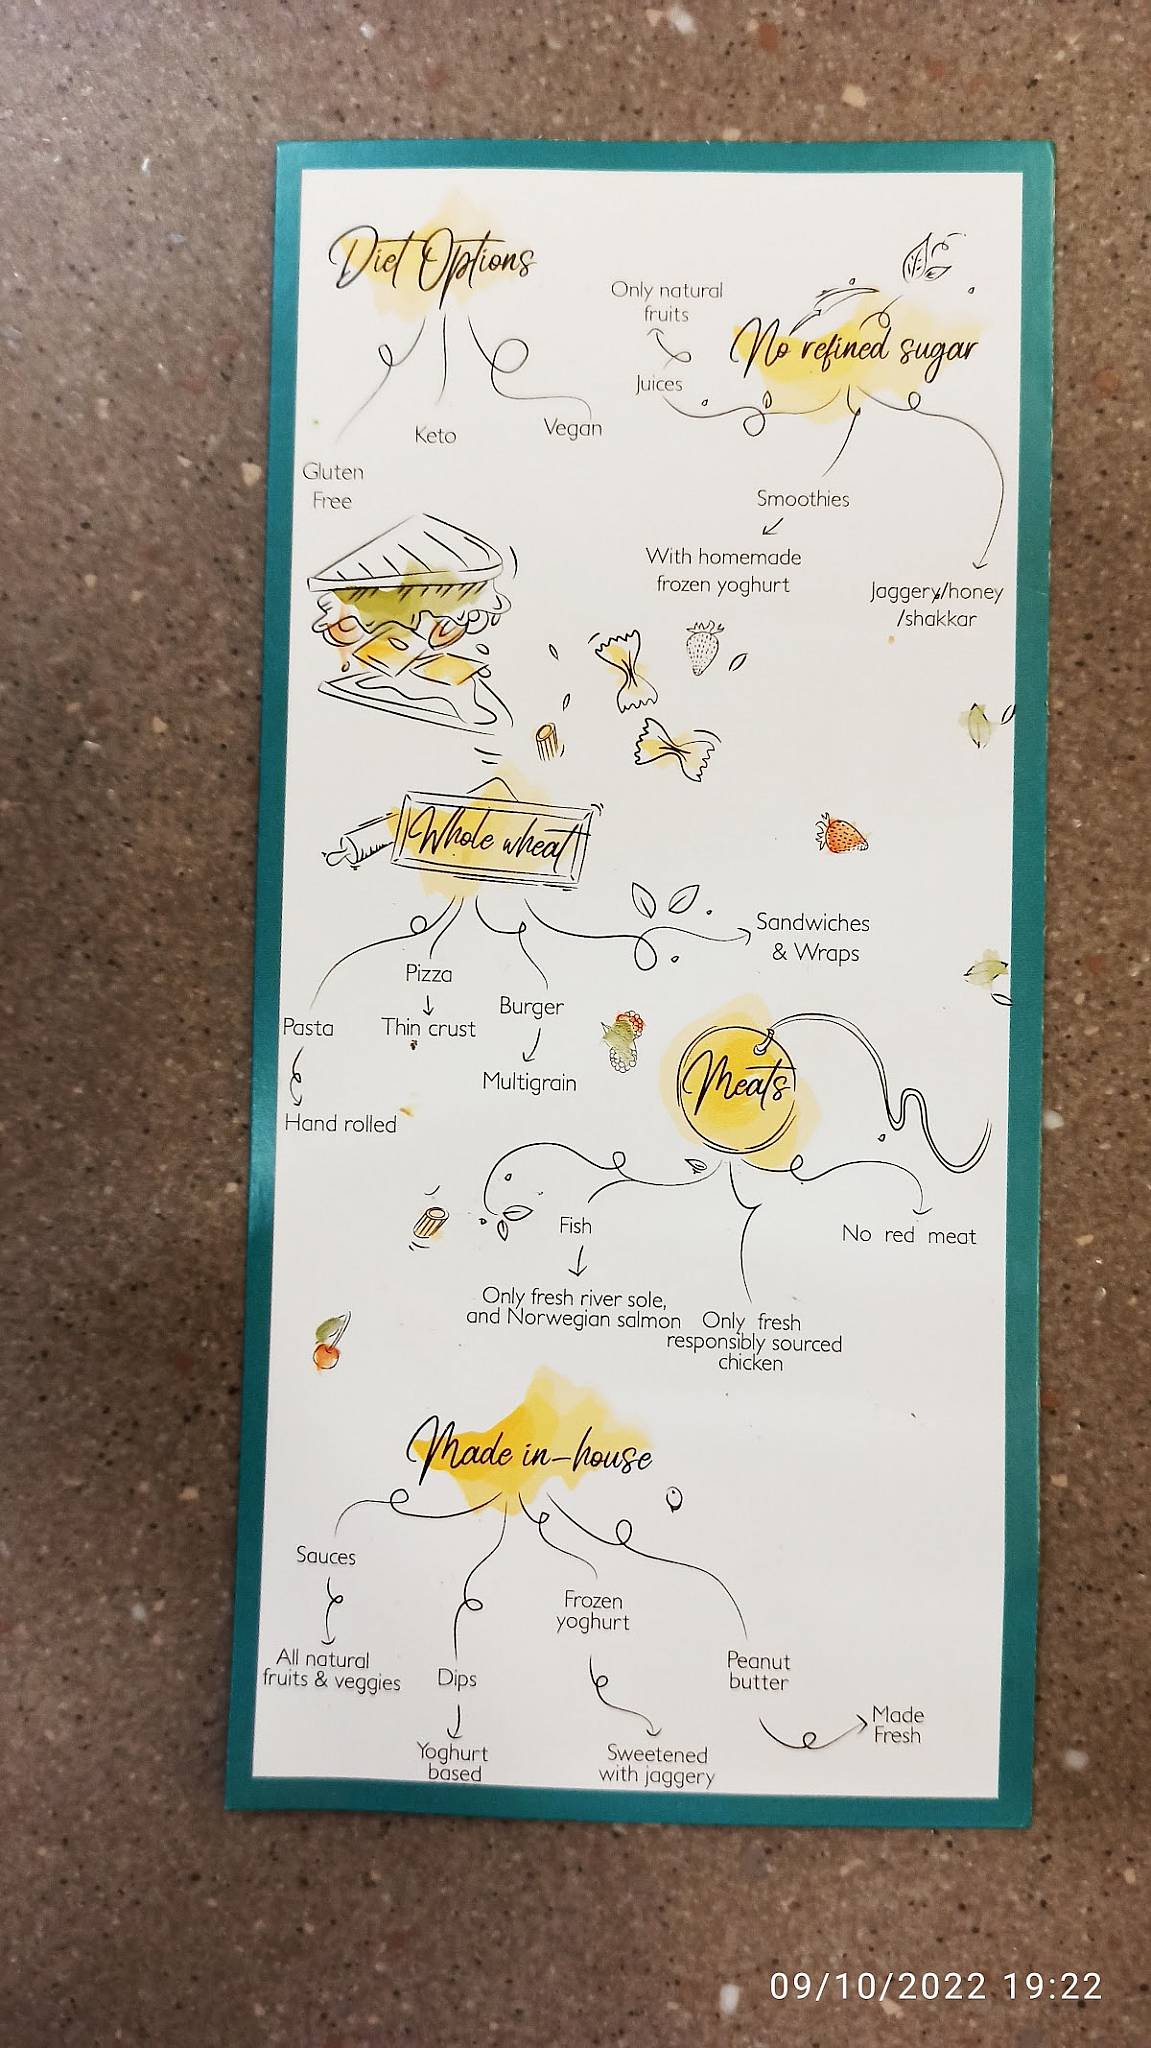 Diet Options
Gluten
Free
Keto
Vegan
No refined sugar
Only natural
fruits
Juices
Smoothies
With homemade
frozen yoghurt
Jaggery/honey
/shakkar
Whole wheat
Pasta
Hand rolled
Pizza
Thin crust
Burger
Multigrain
Sandwiches
& Wraps
Meats
Fish
Only fresh river sole,
and Norwegian salmon
Only fresh
responsibly sourced
chicken
No red meat
Made in-house
Sauces
All natural
fruits & veggies
Dips
Yoghurt
based
Frozen
yoghurt
Sweetened
with jaggery
Peanut
butter
Made
Fresh
09/10/2022 19:22